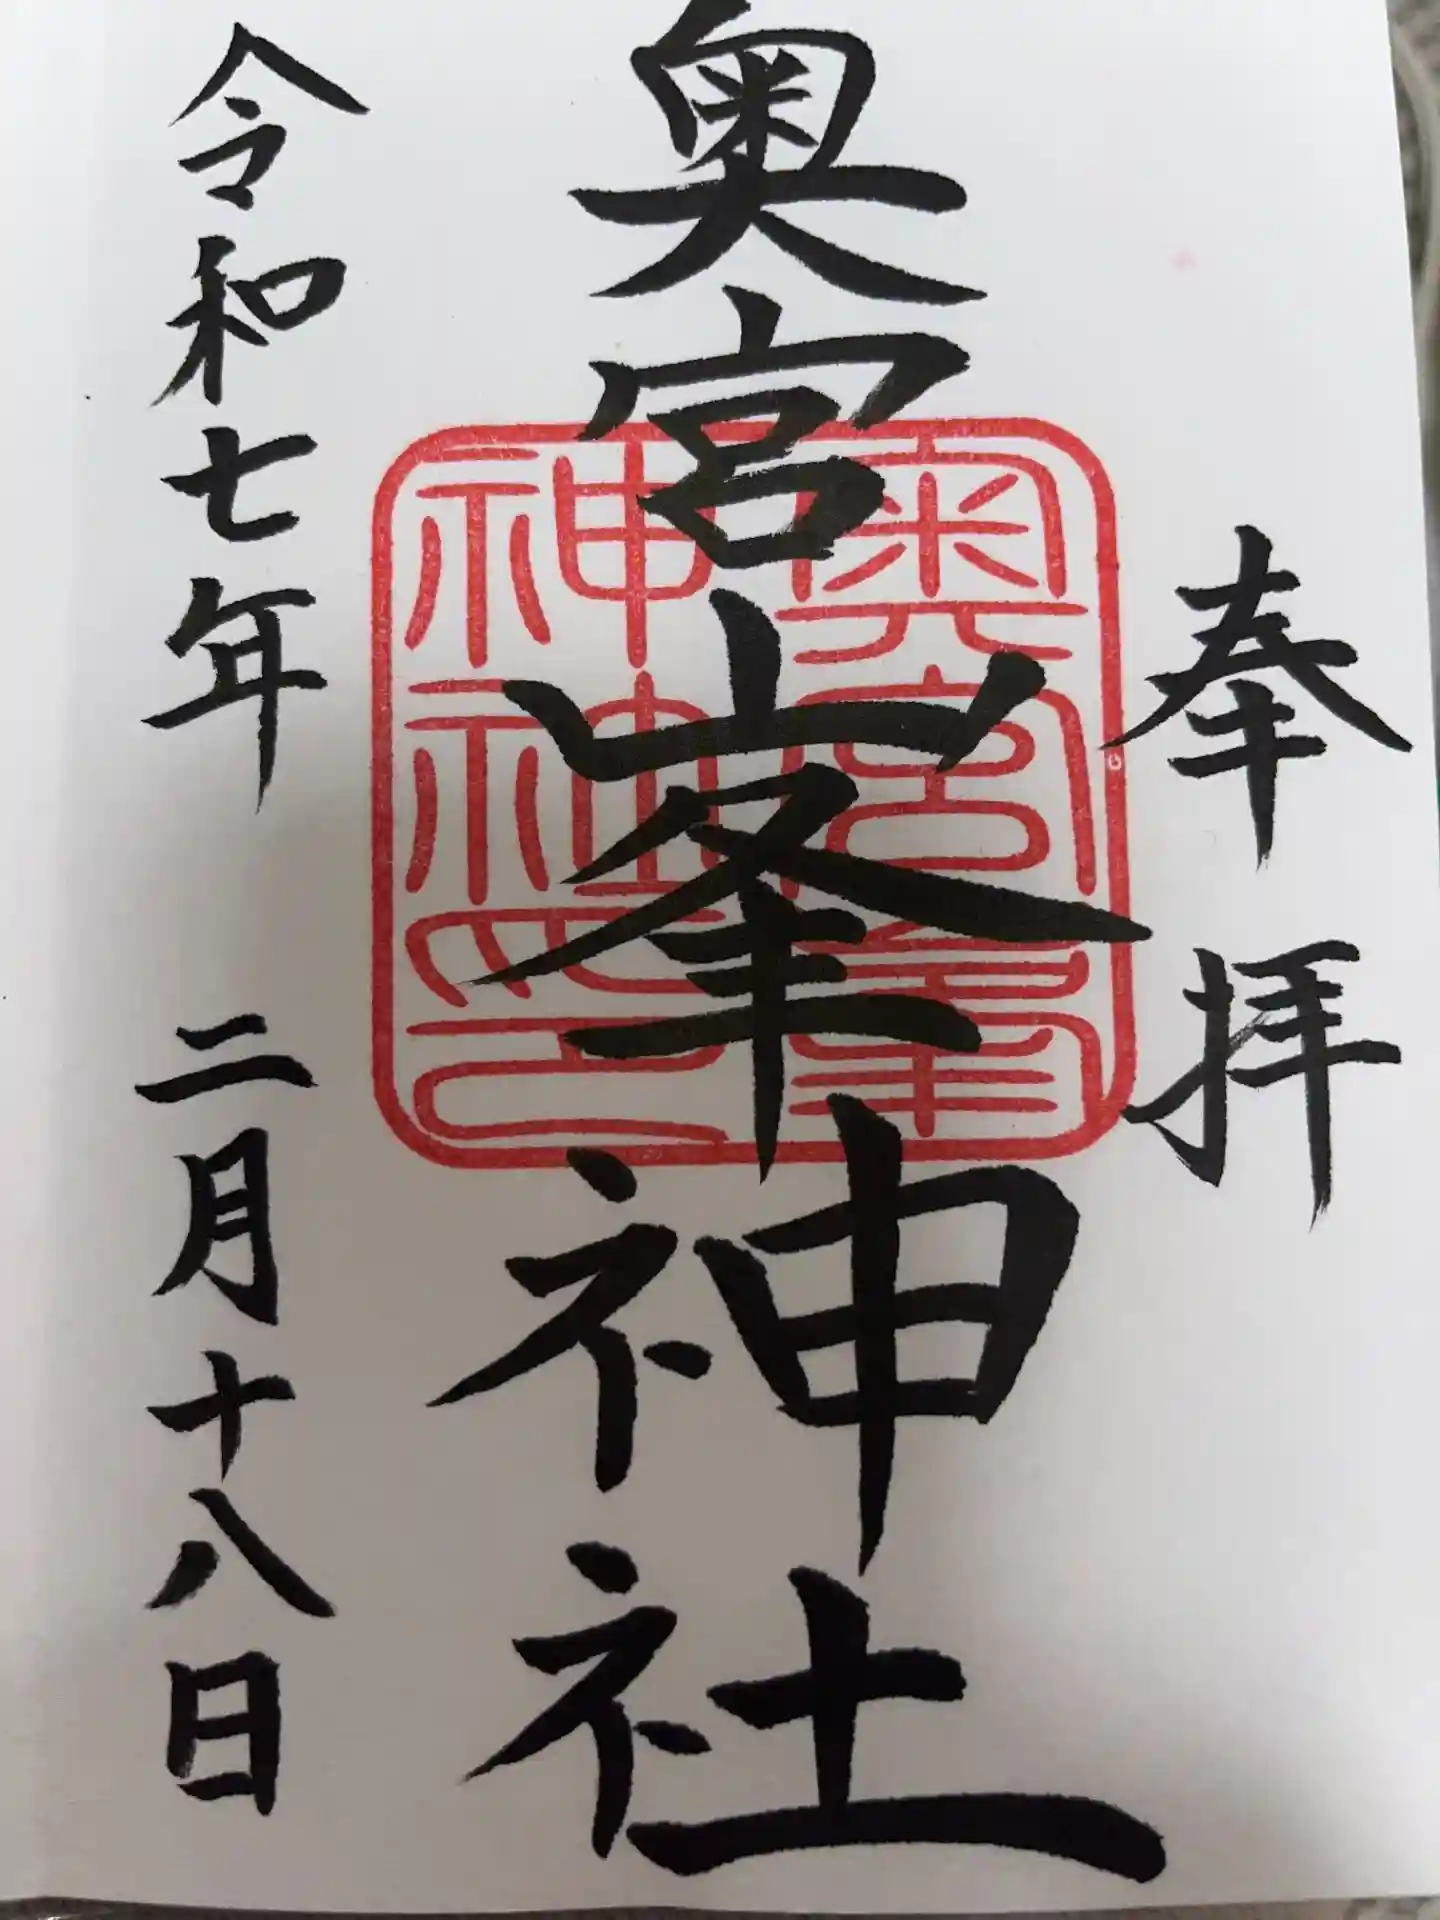 奉拝
奥宮峯神社
奥宮峯
神社之印
令和七年 二月十八日